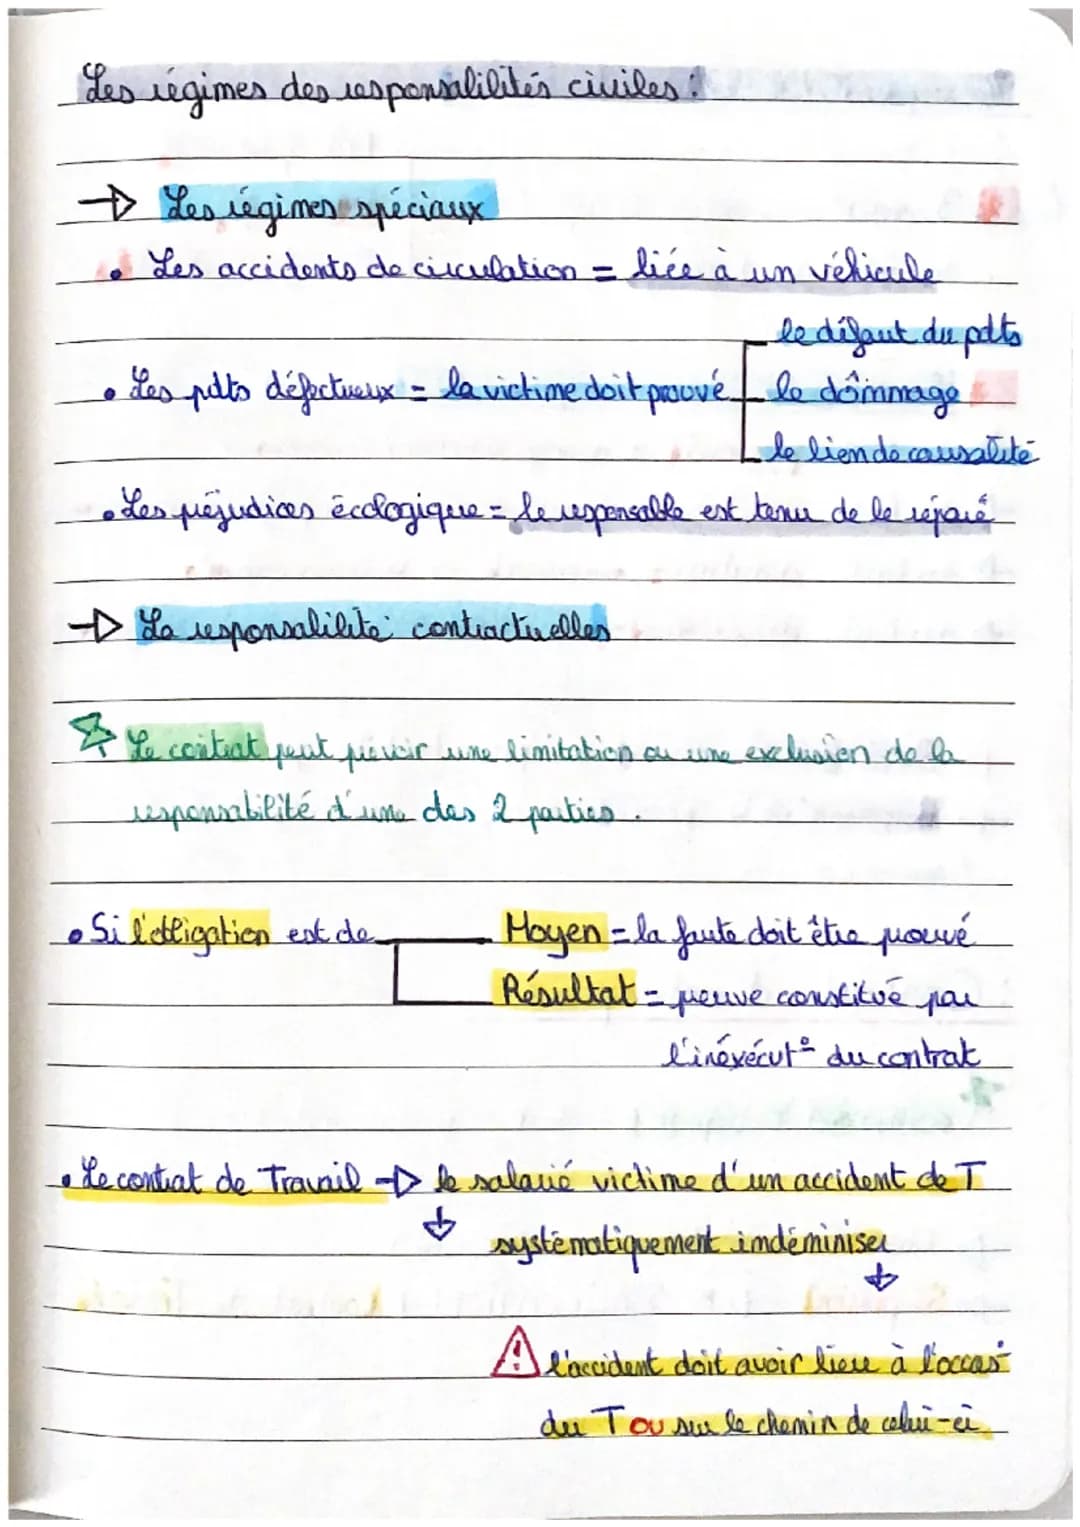 Les régimes des responsalilités civiles :
→ Les régimes spéciaux
• Les accidents de circulation = liée à un véhicule
le défaut du pdts
• Les pdts défectueux = la victime doit prouvé le dômmage
le lien de causalité
• Les préjudices écologique = le responsable est tenu de le réparé
→ La responsalilité contractuelles
Le contrat peut prévoir une limitation ou une exclusion de la
responsabilité d'une des 2 parties .
• Si l'obligation est de Moyen = la faute doit être prouvé
Résultat = preuve constitué par
l'inéxécut° du contrat
• Le contrat de Travail → le salarié victime d'un accident de T
↓ systématiquement indéminiser
↓
⚠ l'accident doit avoir lieu à l'occas°
du T ou sur le chemin de celui-ci